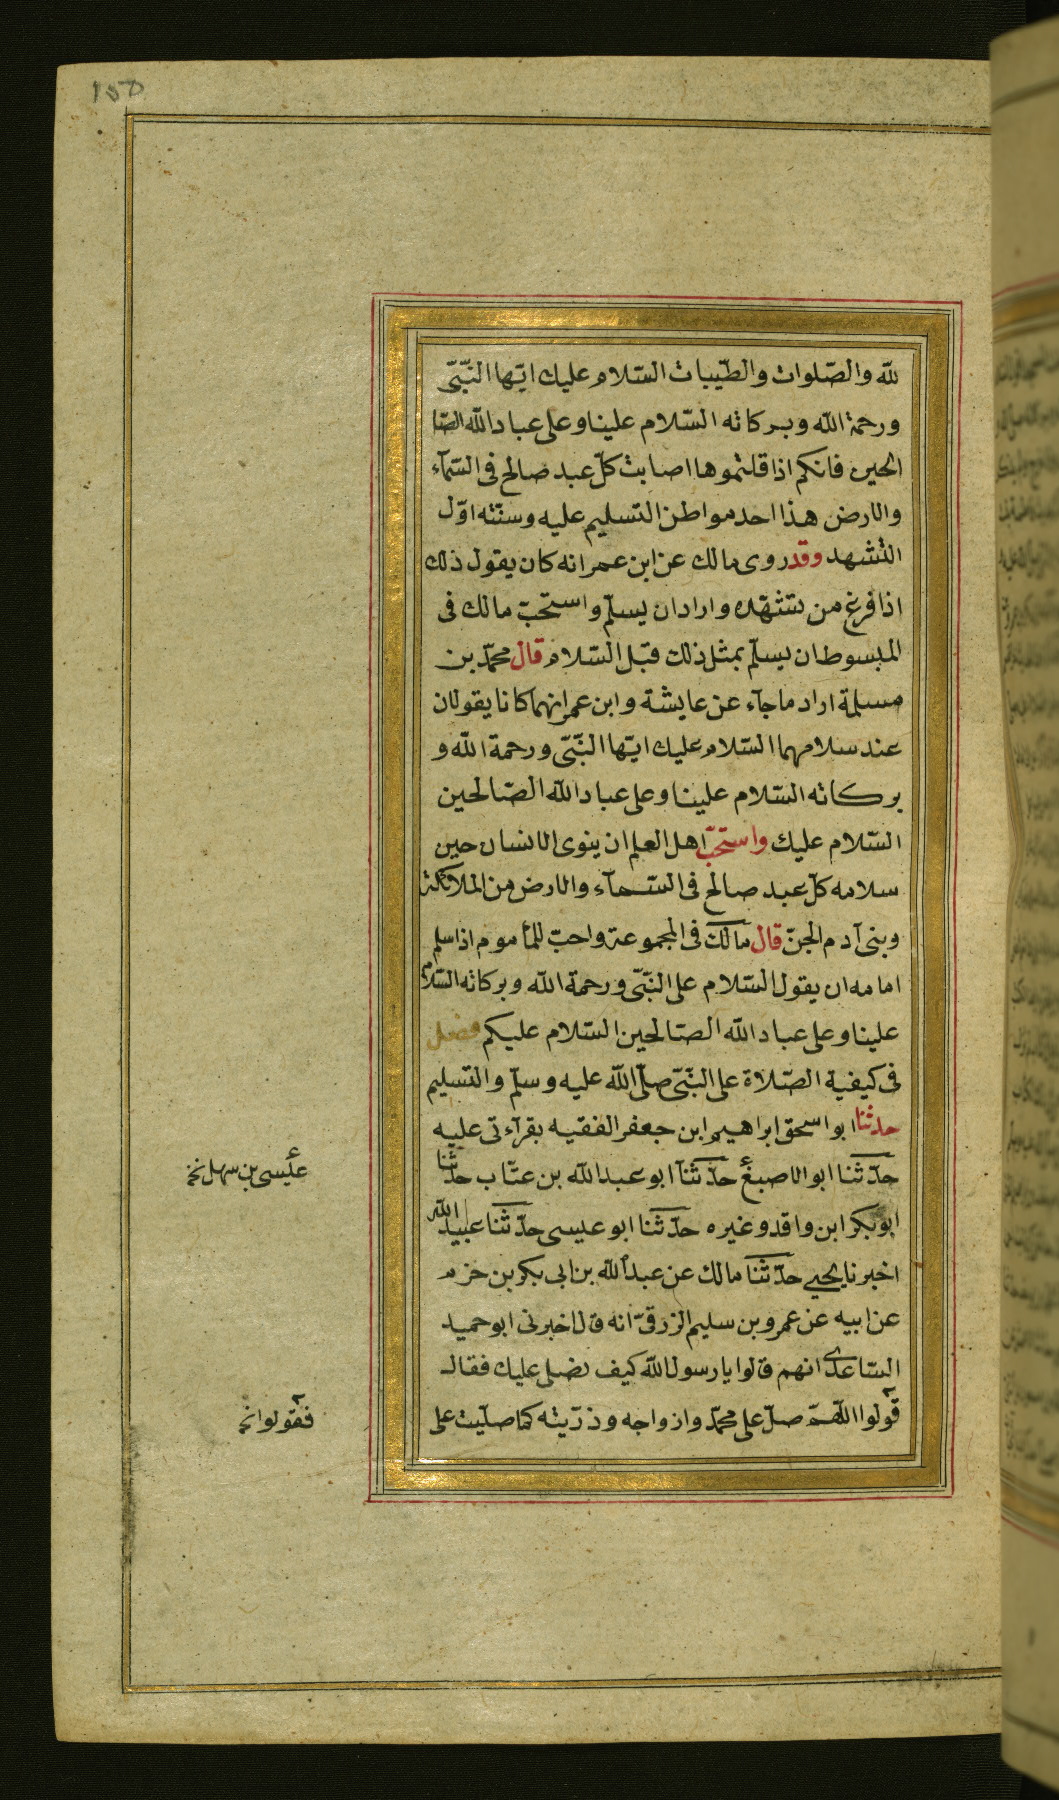 150
لله والصّلوات والطّيبات السّلام عليك ايّها النّبّى
ورحمة الله وبركاته السّلام علينا وعلى عباد الله الصّا
الحين فانكم اذا قلتموها اصابت كلّ عبد صالح فى السّمآء
والارض هذا احد مواطن التسليم عليه وسنّته اوّل
التشهد وقد روى مالك عن ابن عمر انه كان يقول ذلك
اذا فرغ من تشهّده واراد ان يسلّم واستحبّ مالك فى
المبسوط ان يسلّم بمثل ذلك قبل السّلام قال محمّد بن
مسلمة اراد ماجآء عن عايشة وابن عمر انهما كانا يقولان
عند سلامهما السّلام عليك ايّها النّبّى ورحمة الله و
بركاته السّلام علينا وعلى عباد الله الصّالحين
السّلام عليك واستحبّ اهل العلم ان ينوى الانسان حين
سلامه كلّ عبد صالح فى السّمآء والارض من الملائكة
وبنى آدم الجنّ قال مالك فى المجموعة واحبّ للمأموم اذا سلم
امامه ان يقول السّلام على النّبّى ورحمة الله وبركاته السّلام
علينا وعلى عباد الله الصّالحين السّلام عليكم فصل
فى كيفية الصّلاة على النّبّى صلّى الله عليه وسلّم والتسليم
حدثنا ابو اسحق ابراهيم ابن جعفر الفقيه بقرآءتى عليه
حدّثنا ابو الاصبغ حدّثنآ ابو عبد الله بن عتّاب حدّثنا
ابو بكر ابن واقد وغيره حدّثنا ابو عيسى حدّثنا عبيد الله
اخبرنا يحيى حدّثنا مالك عن عبد الله بن ابى بكر بن حزم
عن ابيه عن عمرو بن سليم الزرقىّ انه قال اخبرنى ابو حميد
السّاعدى انهم قالوا يا رسول الله كيف نصلى عليك فقال
قولوا اللّهمّ صلّ على محمّد وازواجه وذرّيته كما صلّيت على
عيسى بن سهل نخ
فقولوا نخ